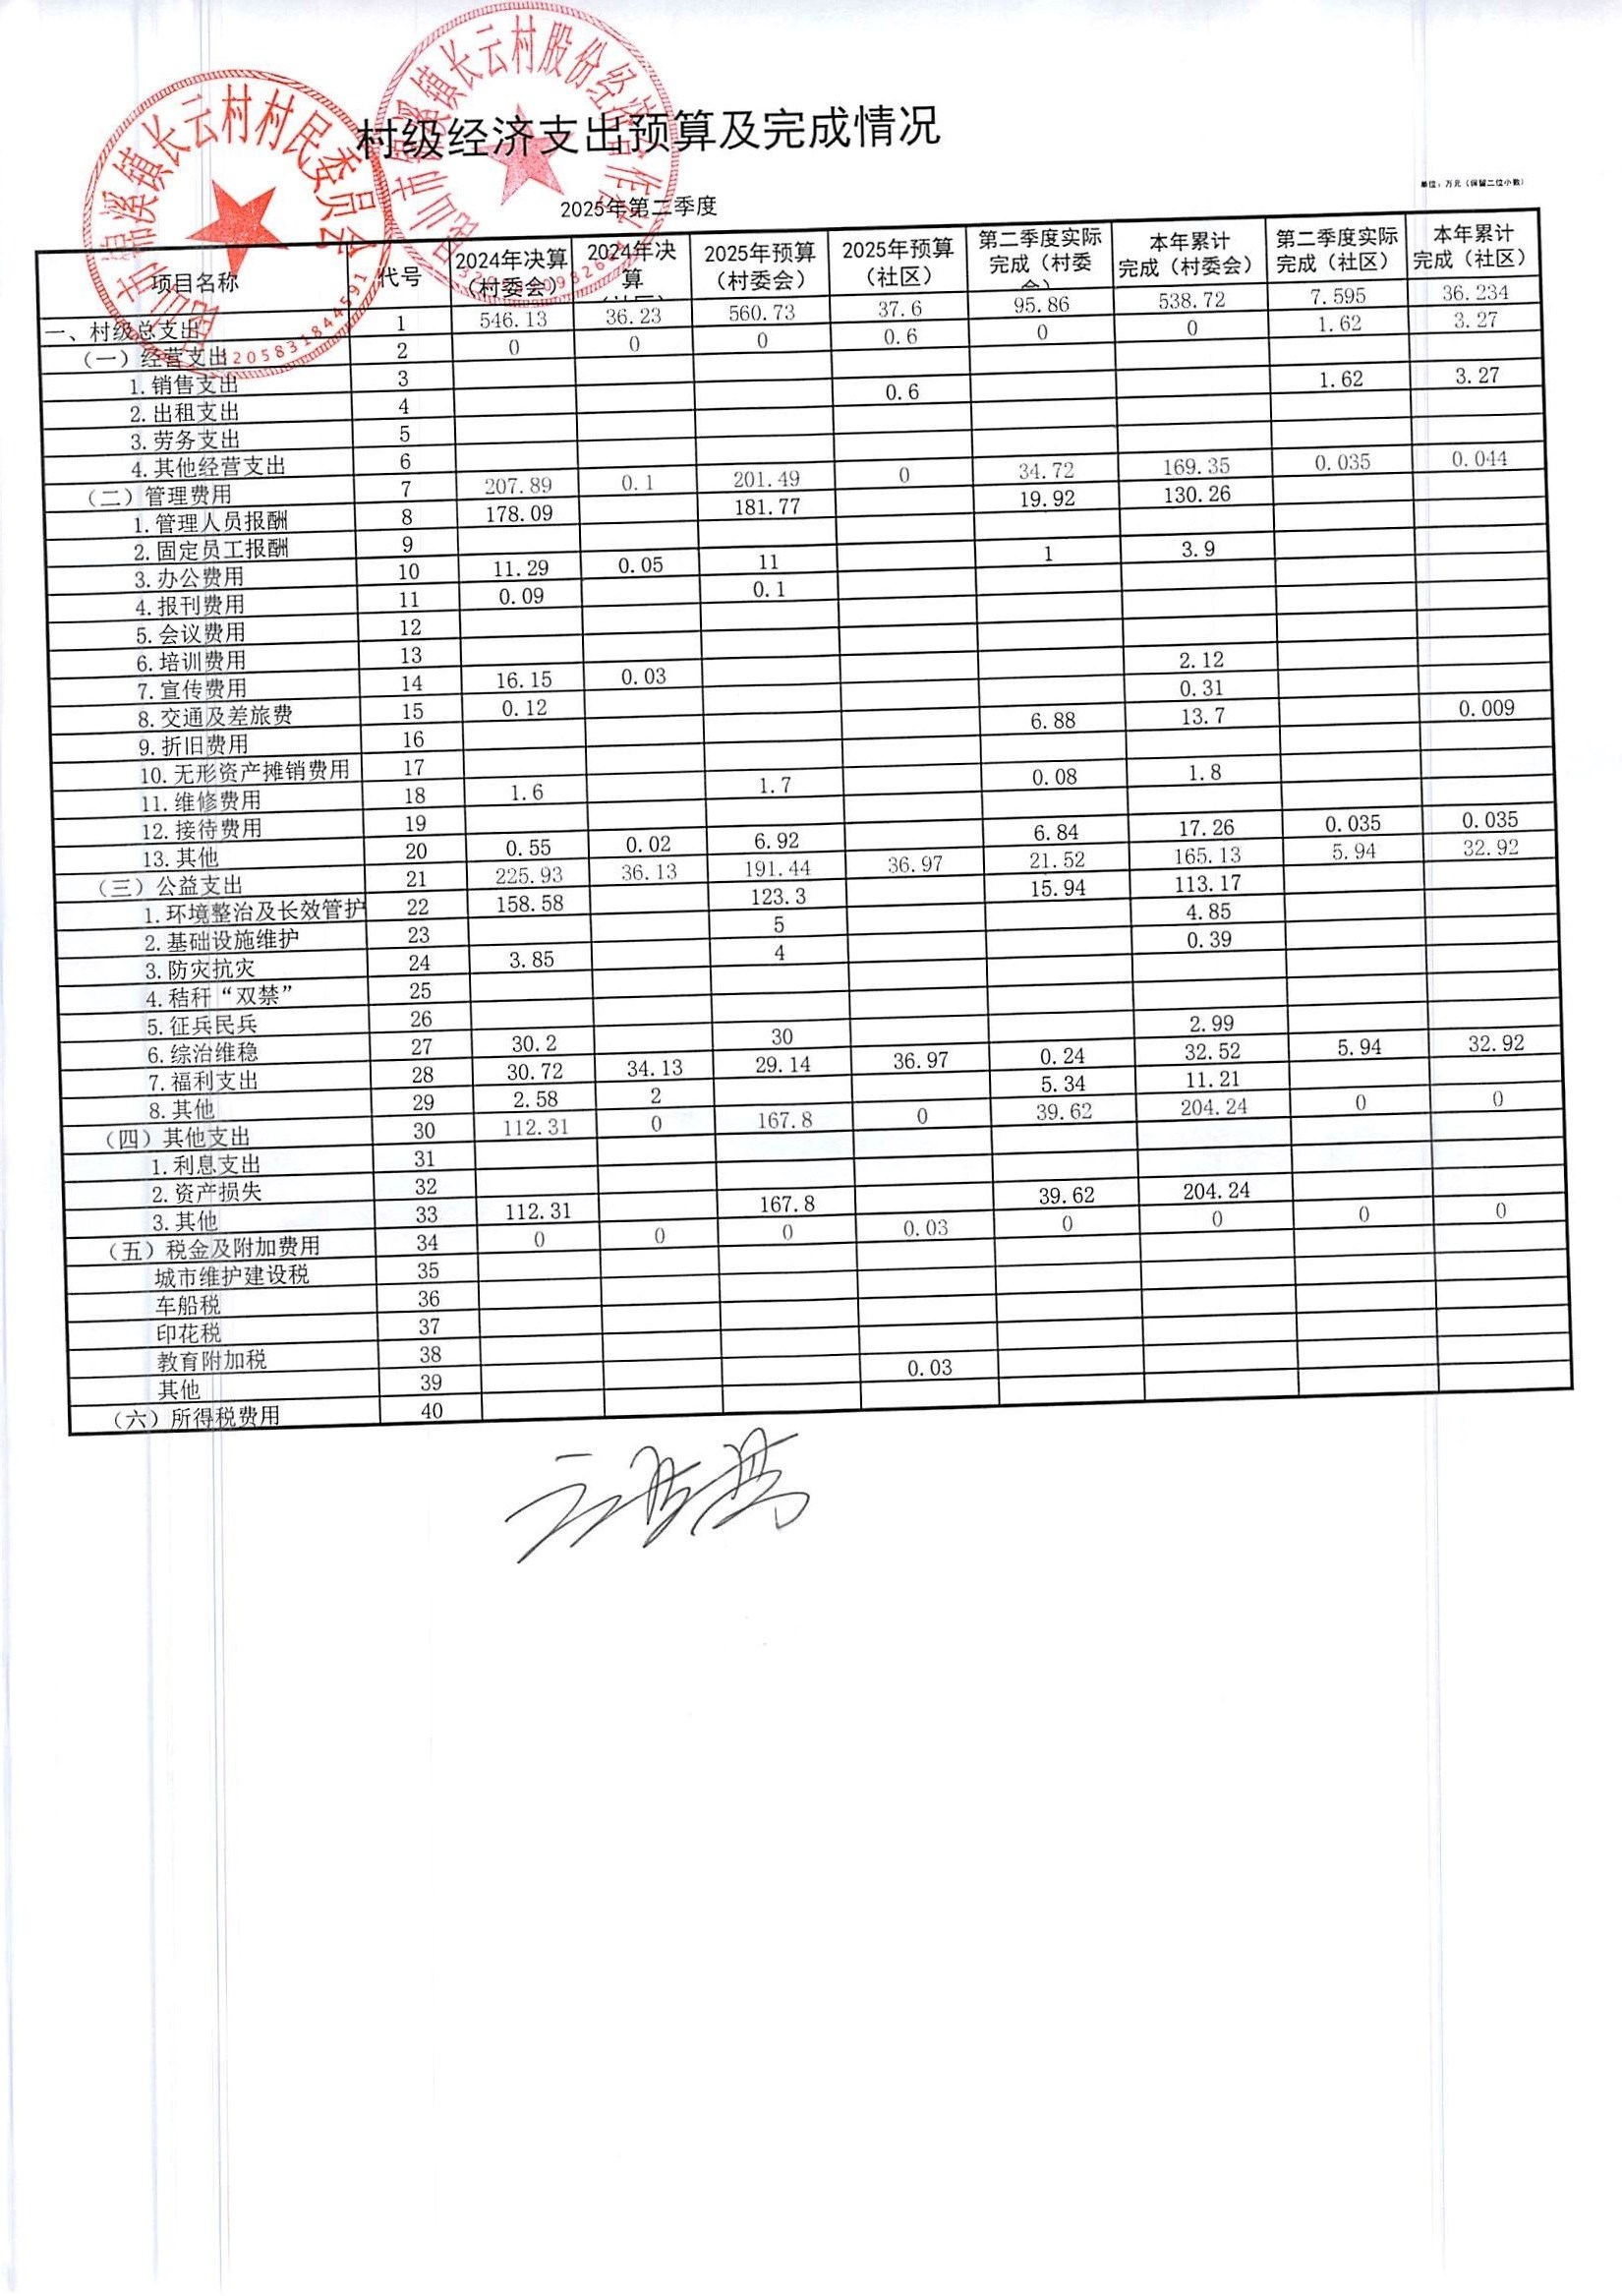 锦溪镇长云村村民委员会
锦溪镇长云村股份经济合作
村级经济支出预算及完成情况
单位：万元（保留二位小数）
2025年第二季度
项目名称 代号 2024年决算（村委会） 2024年决算（社区） 2025年预算（村委会） 2025年预算（社区） 第二季度实际完成（村委会） 本年累计完成（村委会） 第二季度实际完成（社区） 本年累计完成（社区）
一、村级总支出 1 546.13 36.23 560.73 37.6 95.86 538.72 7.595 36.234
（一）经营支出 2 0 0 0 0.6 0 0 1.62 3.27
1.销售支出 3
2.出租支出 4 0.6 1.62 3.27
3.劳务支出 5
4.其他经营支出 6
（二）管理费用 7 207.89 0.1 201.49 0 34.72 169.35 0.035 0.044
1.管理人员报酬 8 178.09 181.77 19.92 130.26
2.固定员工报酬 9
3.办公费用 10 11.29 0.05 11 1 3.9
4.报刊费用 11 0.09 0.1
5.会议费用 12
6.培训费用 13
7.宣传费用 14 16.15 0.03 2.12
8.交通及差旅费 15 0.12 0.31
9.折旧费用 16 6.88 13.7 0.009
10.无形资产摊销费用 17
11.维修费用 18 1.6 1.7 0.08 1.8
12.接待费用 19
13.其他 20 0.55 0.02 6.92 6.84 17.26 0.035 0.035
（三）公益支出 21 225.93 36.13 191.44 36.97 21.52 165.13 5.94 32.92
1.环境整治及长效管护 22 158.58 123.3 15.94 113.17
2.基础设施维护 23 5 4.85
3.防灾抗灾 24 3.85 4 0.39
4.秸秆“双禁” 25
5.征兵民兵 26
6.综治维稳 27 30.2 30 2.99
7.福利支出 28 30.72 34.13 29.14 36.97 0.24 32.52 5.94 32.92
8.其他 29 2.58 2 5.34 11.21
（四）其他支出 30 112.31 0 167.8 0 39.62 204.24 0 0
1.利息支出 31
2.资产损失 32
3.其他 33 112.31 167.8 39.62 204.24
（五）税金及附加费用 34 0 0 0 0.03 0 0 0 0
城市维护建设税 35
车船税 36
印花税 37
教育附加税 38
其他 39 0.03
（六）所得税费用 40